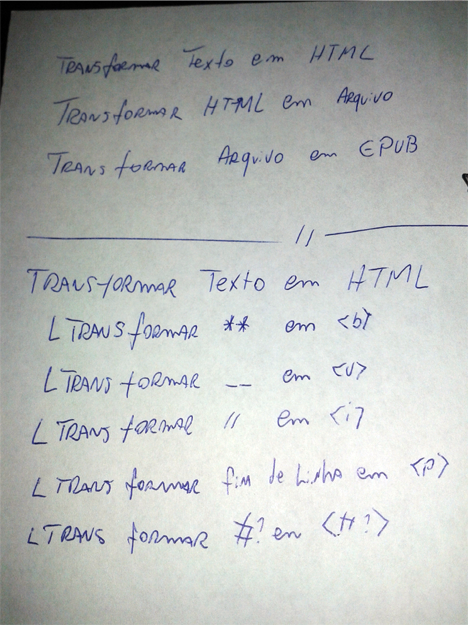 Transformar Texto em HTML
Transformar HTML em Arquivo
Transformar Arquivo em EPUB
//
Transformar Texto em HTML
L Transformar ** em <b>
L Transformar __ em <u>
L Transformar // em <i>
L Transformar fim de linha em <p>
L Transformar #? em <H?>